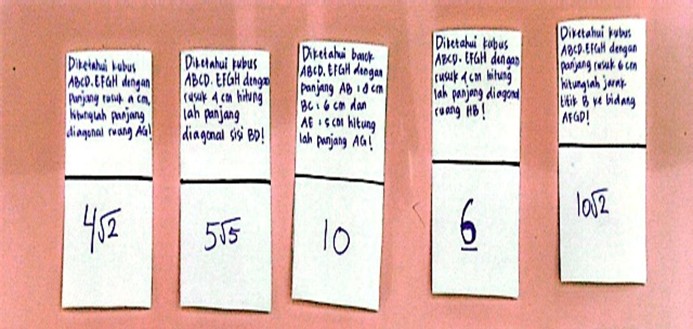 Diketahui kubus
ABCD.EFGH dengan
Panjang rusuk a cm,
hitunglah panjang
diagonal ruang AG!
4√2
Diketahui kubus
ABCD.EFGH dengan
rusuk 4 cm hitung
lah panjang
diagonal sisi BD!
5√5
Diketahui balok
ABCD.EFGH dengan
panjang AB = 8 cm
BC = 6 cm dan
AE = 5 cm hitung
lah panjang AG!
10
Diketahui kubus
ABCD.EFGH dengan
rusuk 4 cm hitung
lah panjang diagonal
ruang HB!
6
Diketahui kubus
ABCD.EFGH dengan
panjang rusuk 6 cm
hitunglah jarak
titik B ke bidang
AFGD!
10√2